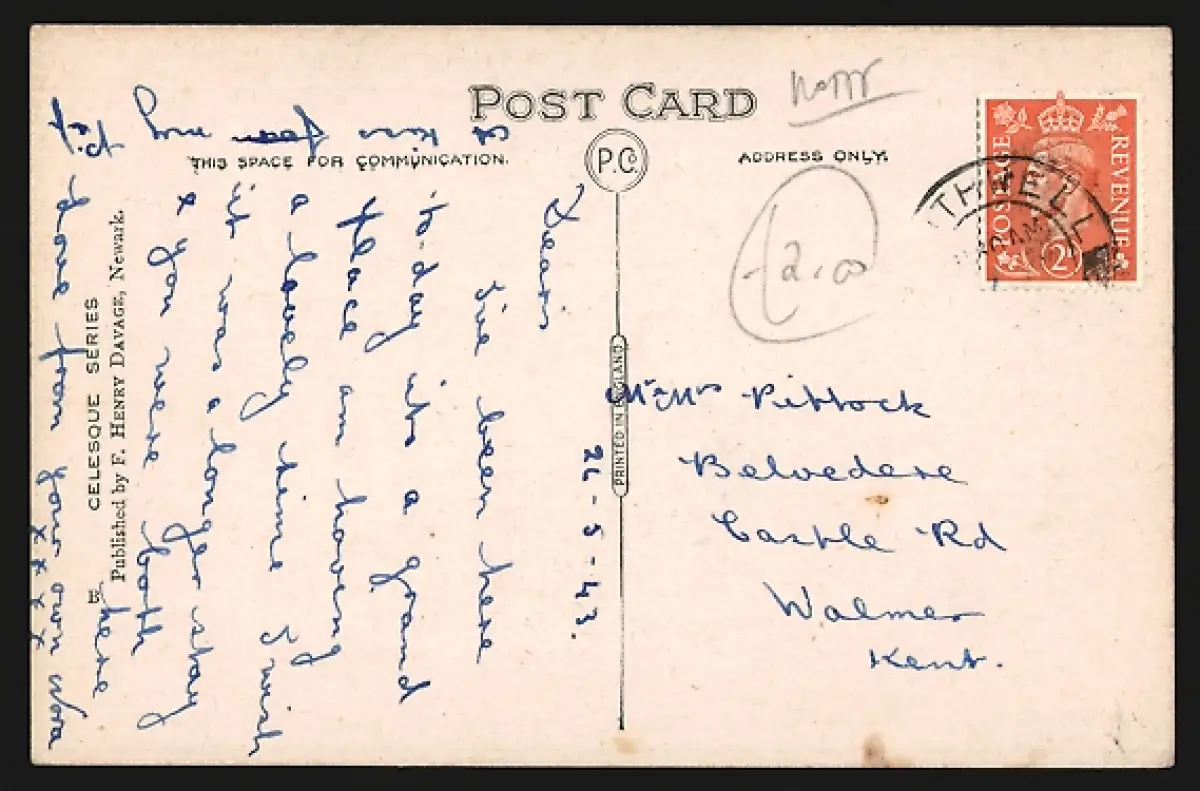 POST CARD
Nottr
THIS SPACE FOR COMMUNICATION.
P.C.
ADDRESS ONLY.
POSTAGE
REVENUE
2D
THWELL
AM
£2.00
26-5-43.
Dearis
I've been here
to-day its a grand
place am having
a lovely time I wish
it was a longer stay
& you were both
here
love from your own Nora
x x x x
A kiss for my
Pet
Mr & Mrs Pittock
Belvedere
Castle Rd
Walmer
Kent.
PRINTED IN ENGLAND
CELESQUE SERIES
Published by F. HENRY DAVAGE, Newark.
B